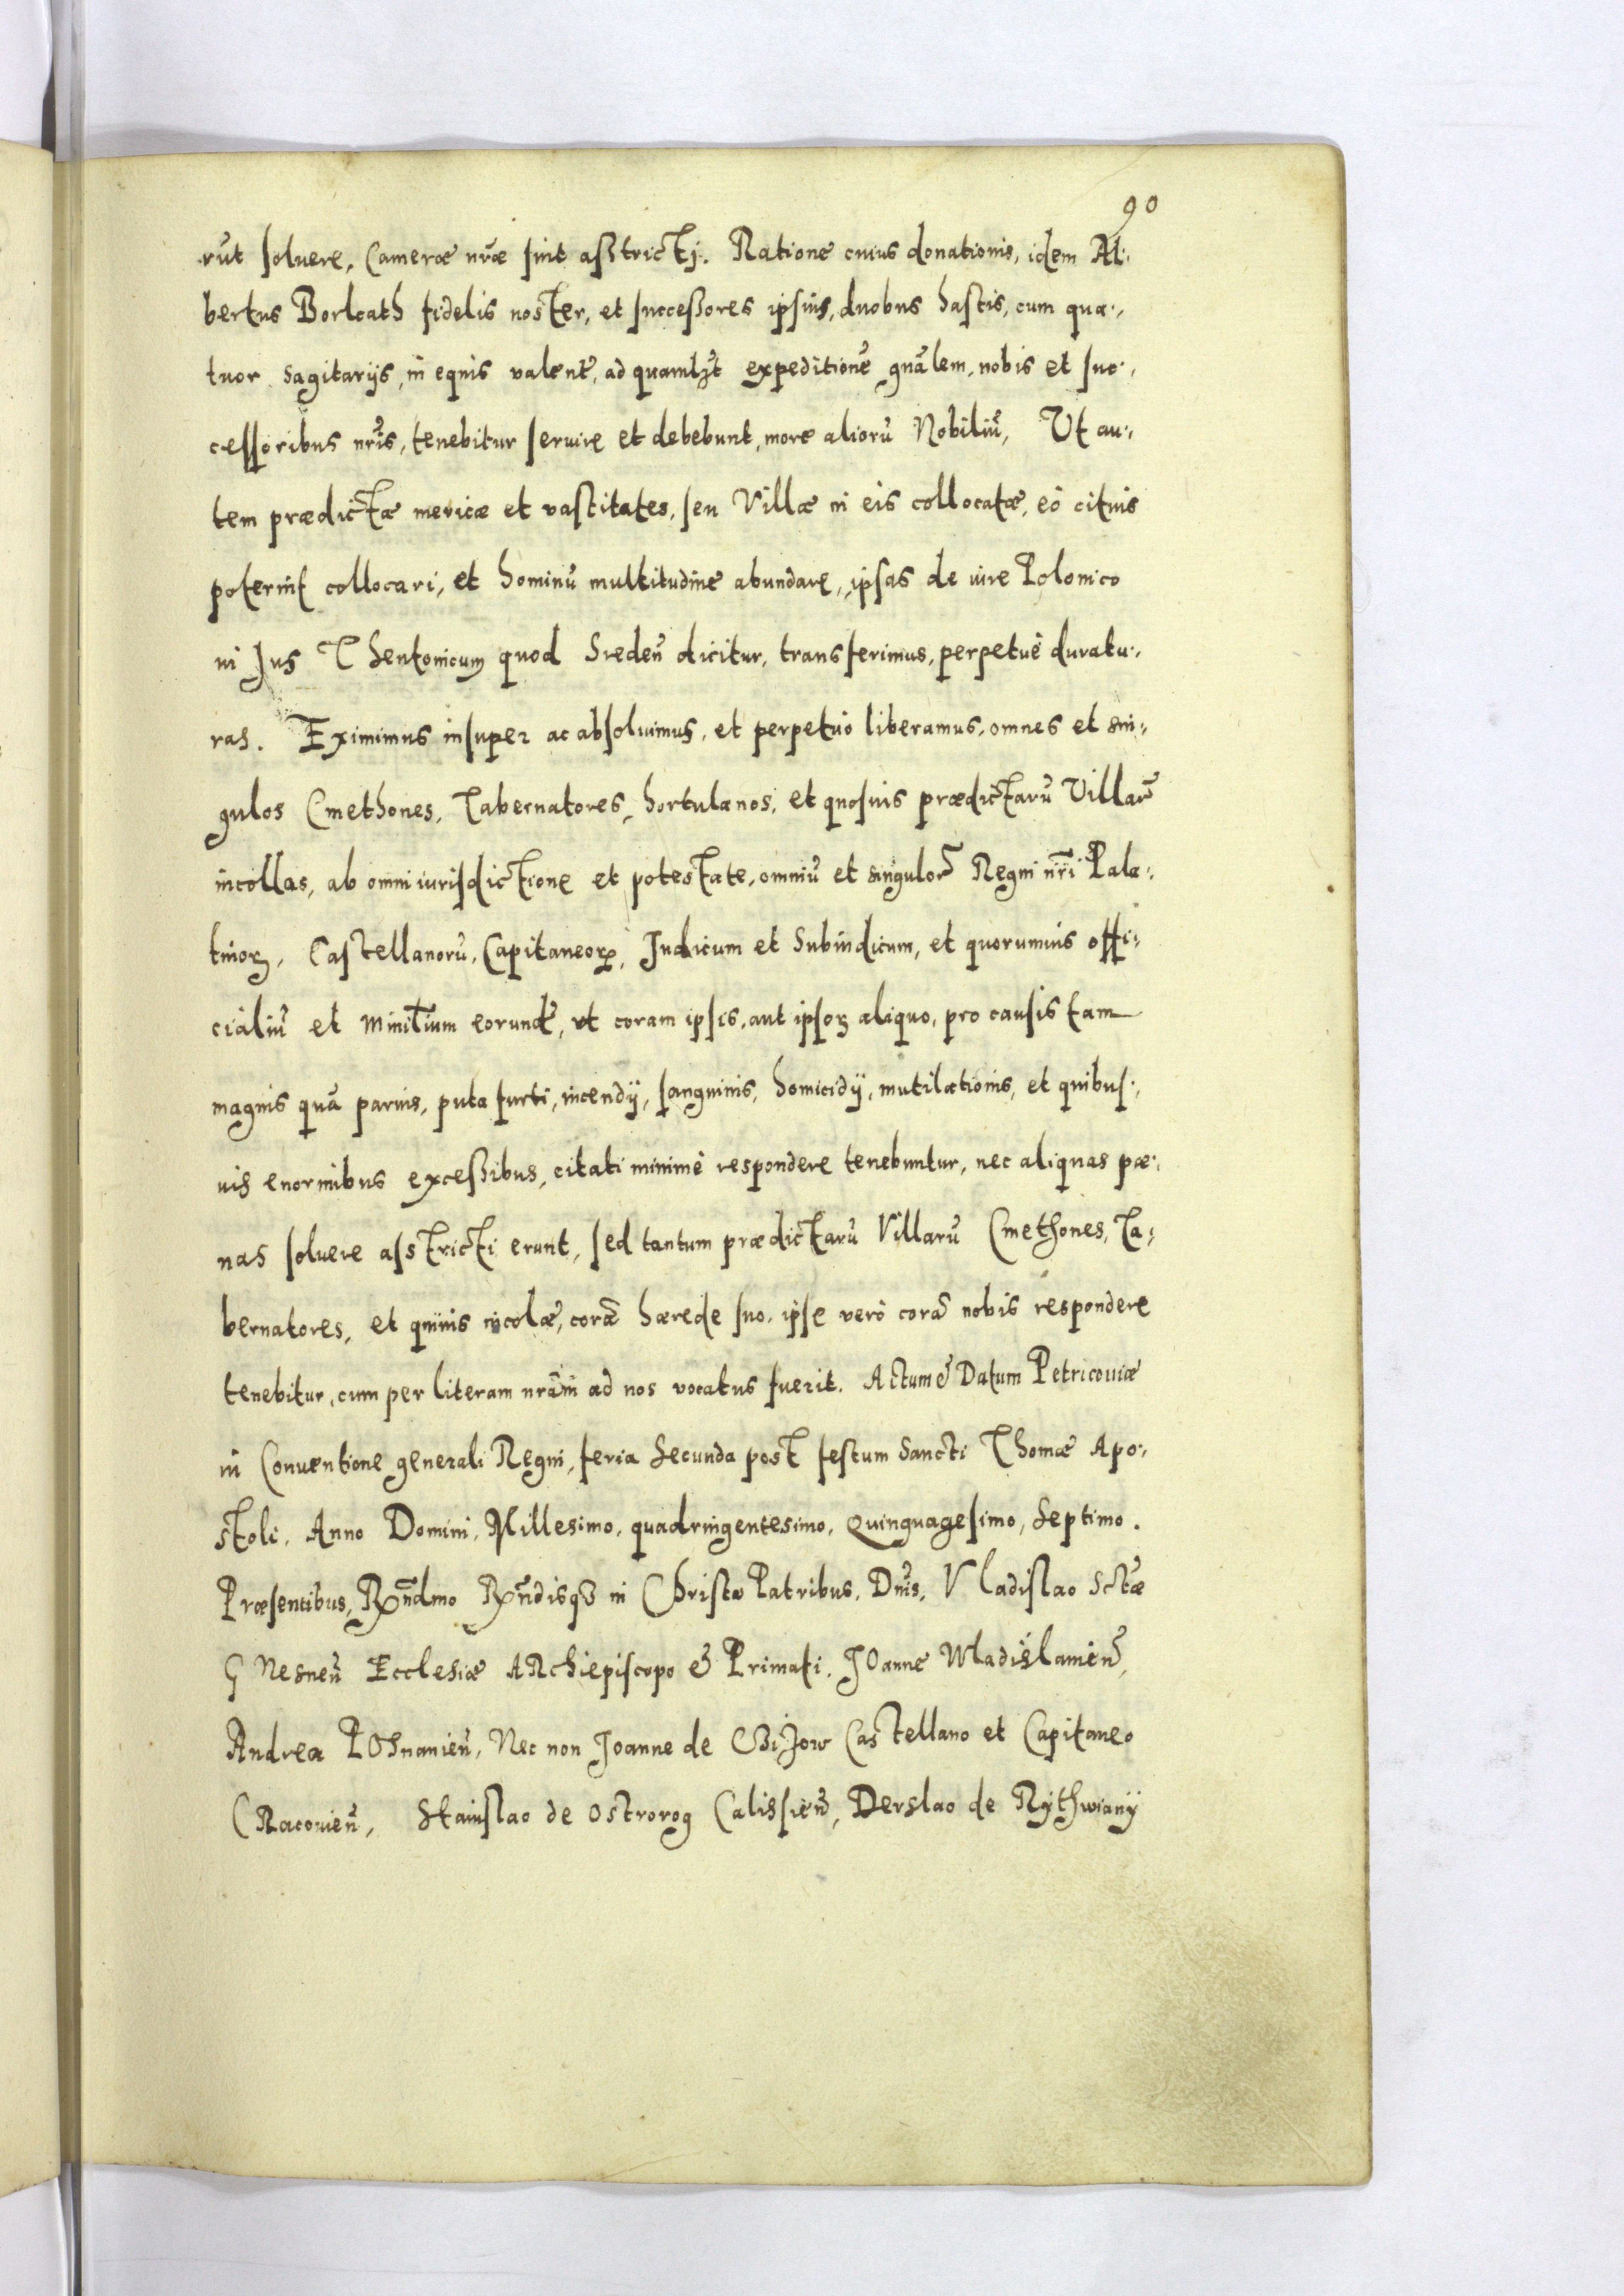 90
rūt soluere, Camerae nr̄ae sint asstricti. Ratione cuius donationis, idem Al:
bertus Borlcath fidelis noster, et successores ipsius, duobus hastis, cum qua:
tuor sagitarijs, in equis valent̄, ad quamlꝫt expeditionē gnālem, nobis et suc:
cessoribus nr̄is, tenebitur seruire et debebunt, more aliorū Nobiliū, Ut au:
tem praedictae mericae et vastitates, seu Villae in eis collocatae, eò citius
poterint collocari, et hominū multitudine abundare, ipsas de iure Polonico
in Jus Theutonicum quod Sredeñ dicitur, transferimus, perpetuè duratu:
ras. Eximimus insuper ac absoluimus, et perpetuò liberamus, omnes et sin:
gulos Cmethones, Tabernatores, hortulanos, et quosuis praedictarū Villar̄
incollas, ab omni iurisdictione et potestate, omniū et singulor̄ Regni nr̄i Pala:
tinoꝝ, Castellanorū, Capitaneoꝝ, Judicum et Subiudicum, et quorumuis offi:
cialiū et Minītium eorundē, vt coram ipsis, aut ipsoꝝ aliquo, pro causis tam
magnis quā paruis, puta furti, incendij, sanguinis, homicidij, mutilationis, et quibus:
uis enormibus excessibus, citati minimè respondere tenebuntur, nec aliquas pae:
nas soluere asstricti erunt, sed tantum praedictarū Villarū Cmethones, Ta:
bernatores, et quiuis incolae, corā haerede suo, ipse verò corā nobis respondere
tenebitur, cum per literam nrām ad nos vocatus fuerit. Actum & Datum Petricouiae
in Conuentione generali Regni, feria Secunda post festum Sancti Thomae Apo:
stoli, Anno Domini, Millesimo, quadringentesimo, Quinquagesimo, Septimo.
Praesentibus, Rx̄ndmo Rx̄ndisqꝫ in Christo Patribus, Dn̄is, Vladislao Sctāe
GNesneñ Ecclesiae ARchiepiscopo & Primati, JOanne Wladislauieñ,
Andrea POsnanieñ, Nec non Joanne de Czijow Castellano et Capitaneo
CRacouieñ, Stanislao de Ostrorog Calissieñ, Derslao de Rythwiany